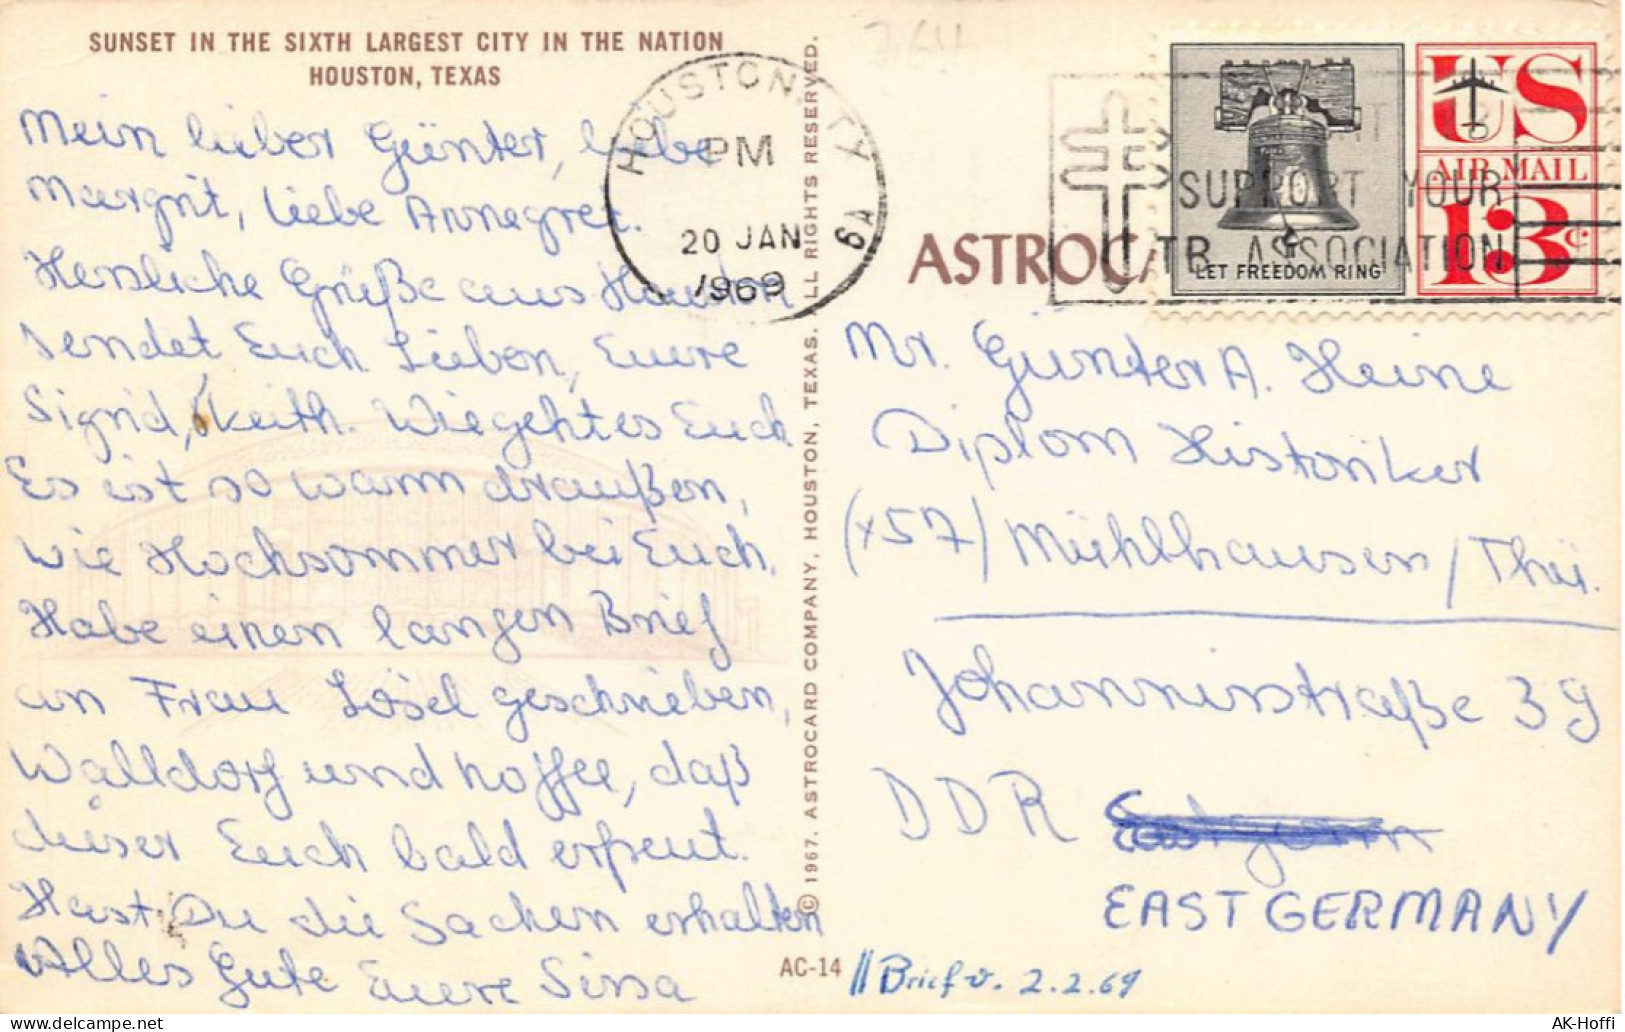 SUNSET IN THE SIXTH LARGEST CITY IN THE NATION
HOUSTON, TEXAS
Mein lieber Günter, liebe
Margrit, liebe Annegret.
Herzliche Grüße aus Houston
sendet Euch Lieben, Eure
Sigrid, Keith. Wie geht es Euch
Es ist so warm draußen,
wie Hochsommer bei Euch.
Habe einen langen Brief
an Frau Lösel geschrieben,
Walldorf und hoffe, daß
dieser Euch bald erfreut.
Hast Du die Sachen erhalten
Alles Gute Eure Sissa
© 1967. ASTROCARD COMPANY, HOUSTON, TEXAS. ALL RIGHTS RESERVED.
AC-14
HOUSTON, TX
PM
20 JAN
1969
6A
SUPPORT YOUR
TB ASSOCIATION
LET FREEDOM RING
US
AIR MAIL
13c
ASTROCA
Mr. Günter A. Heine
Diplom Historiker
(x57) Mühlhausen / Thü.
Johannisstraße 39
DDR
EAST GERMANY
|| Brief v. 2.2.69
AK-Hoffi